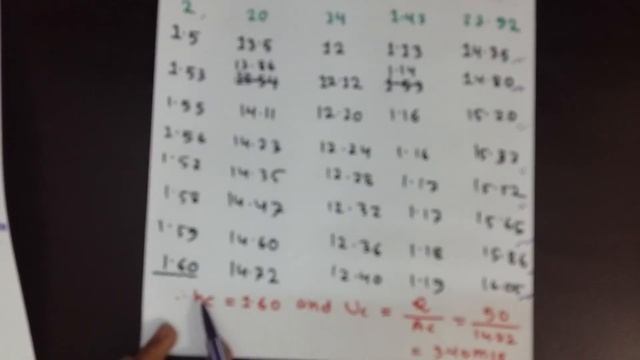 2 20 14 1.43 23.92
1.5 13.5 12 1.13 14.35
1.53 13.86 12.12 1.14 14.80
1.55 14.11 12.20 1.16 15.20
1.56 14.23 12.24 1.16 15.37
1.57 14.35 12.28 1.17 15.52
1.58 14.47 12.32 1.17 15.65
1.59 14.60 12.36 1.18 15.86
1.60 14.72 12.40 1.19 16.05
∴ hc = 1.60 and Uc = Q/Ac = 50/14.72
= 3.40 m/s